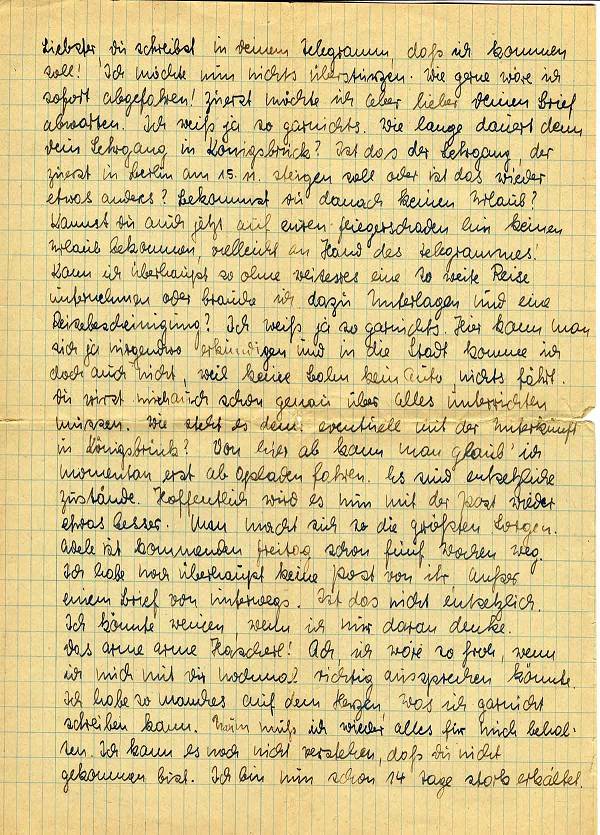 Liebster du schreibst in deinem Telegramm, daß ich kommen
soll! Ich möchte nun nichts überstürzen. Wie gerne wäre ich
sofort abgefahren! Zuerst möchte ich aber lieber deinen Brief
abwarten. Ich weiß ja so garnichts. Wie lange dauert denn
dein Lehrgang in Königsbrück? Ist das der Lehrgang, der
zuerst in Berlin am 15. 11. steigen soll oder ist das wieder
etwas anders? Bekommst du danach keinen Urlaub?
Kannst du auch jetzt auf euren Fliegerschaden hin keinen
Urlaub bekommen, vielleicht an Hand des Telegrammes!
Kann ich überhaupt so ohne weiteres eine so weite Reise
unternehmen oder brauche ich dazu Unterlagen und eine
Reisebescheinigung? Ich weiß ja so garnichts. Hier kann man
sich ja nirgendwo erkundigen und in die Stadt komme ich
doch auch nicht, weil keine Bahn kein Auto, nichts fährt.
Du wirst mich auch schon genau über alles unterrichten
müssen. Wie steht es denn eventuell mit der Unterkunft
in Königsbrück? Von hier ab kann man glaub' ich
momentan erst ab Opladen fahren. Es sind entsetzliche
Zustände. Hoffentlich wird es nun mit der Post wieder
etwas besser. Man macht sich so die größten Sorgen.
Adele ist kommenden Freitag schon fünf Wochen weg.
Ich habe noch überhaupt keine Post von ihr, außer
einem Brief von unterwegs. Ist das nicht entsetzlich.
Ich könnte weinen, wenn ich nur daran denke.
Das arme arme Hascherl! Ach, ich wäre so froh, wenn
ich mich mit dir nochmal richtig aussprechen könnte.
Ich habe so manches auf dem Herzen, was ich garnicht
schreiben kann. Nun muß ich wieder alles für mich behal-
ten. Ich kann es noch nicht verstehen, daß du nicht
gekommen bist. Ich bin nun schon 14 Tage stark erkältet.